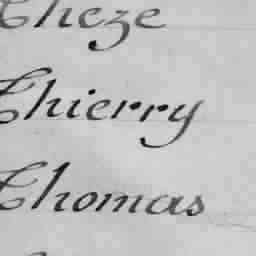 Theze
Thierry
Thomas